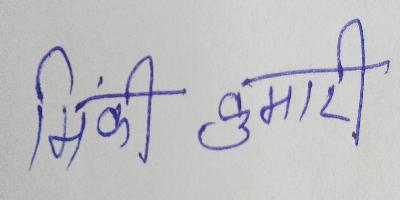 मिंकी कुमारी